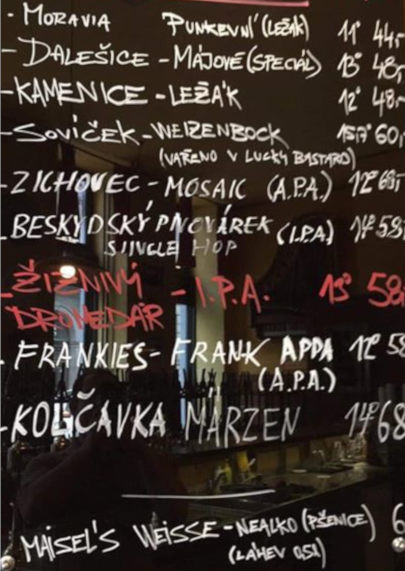 - MORAVIA PUNKEVNÍ (LEŽÁK) 11° 44,-
- DALEŠICE - MÁJOVÉ (SPECIÁL) 13° 48,-
- KAMENICE - LEŽÁK 12° 48,-
- SOVIČEK - WEIZENBOCK 60,-
(VAŘENO V LUCKY BASTARD)
- ZICHOVEC - MOSAIC (A.P.A.) 12° 68,-
- BESKYDSKÝ PIVOVÁREK (I.P.A.) 14° 58,
SINGLE HOP
- ŽIZNIVÝ - I.P.A. 15° 58,
DROMEDÁR
- FRANKIES - FRANK APPA 12° 58
(A.P.A.)
- KOLČAVKA MÄRZEN 14° 68
MAISEL'S WEISSE - NEALKO (PŠENICE) 6
(LÁHEV 0,5l)